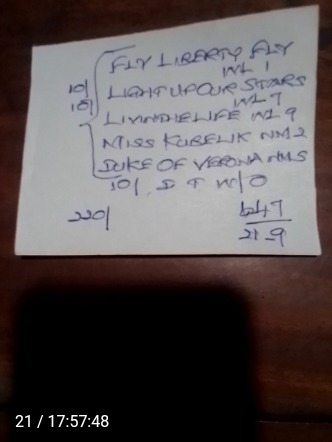 FLY LIBERTY FLY
WL 1
10/
LIGHT UP OUR STARS
10/
WL 7
LIVINTHELIFE WL 9
MISS KUBELIK NM2
DUKE OF VERONA NMS
10/, D T W/O
220/
647
21-9
21 / 17:57:48